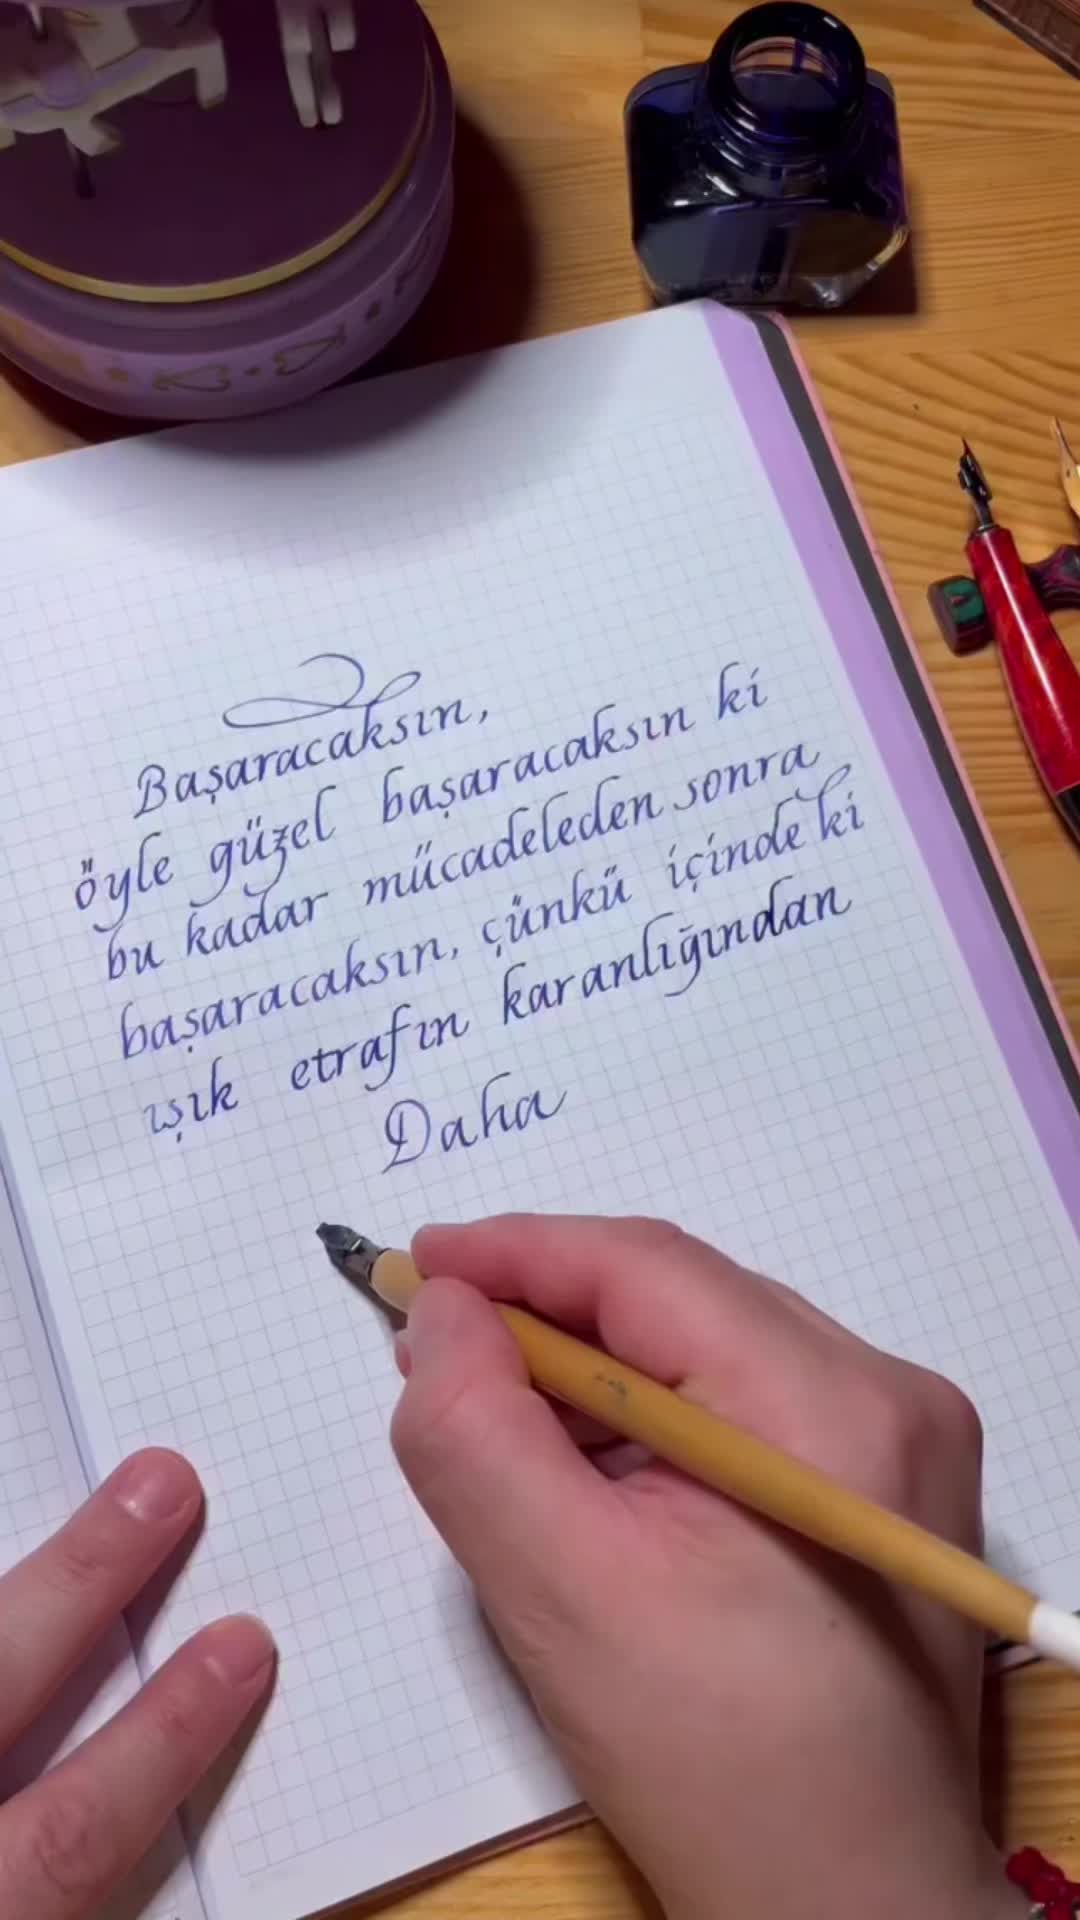 Başaracaksın,
öyle güzel başaracaksın ki
bu kadar mücadeleden sonra
başaracaksın, çünkü içinde ki
ışık etrafın karanlığından
Daha